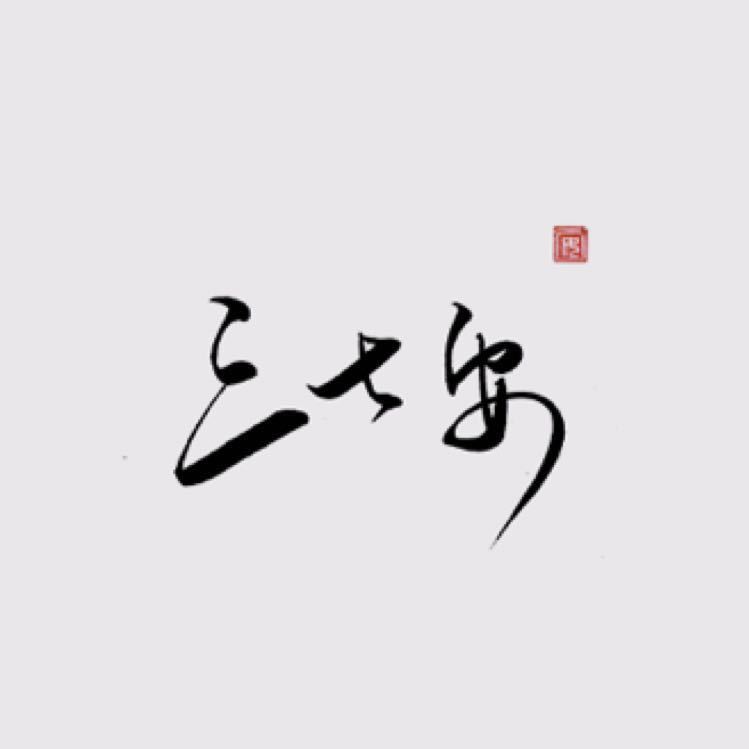 三七安